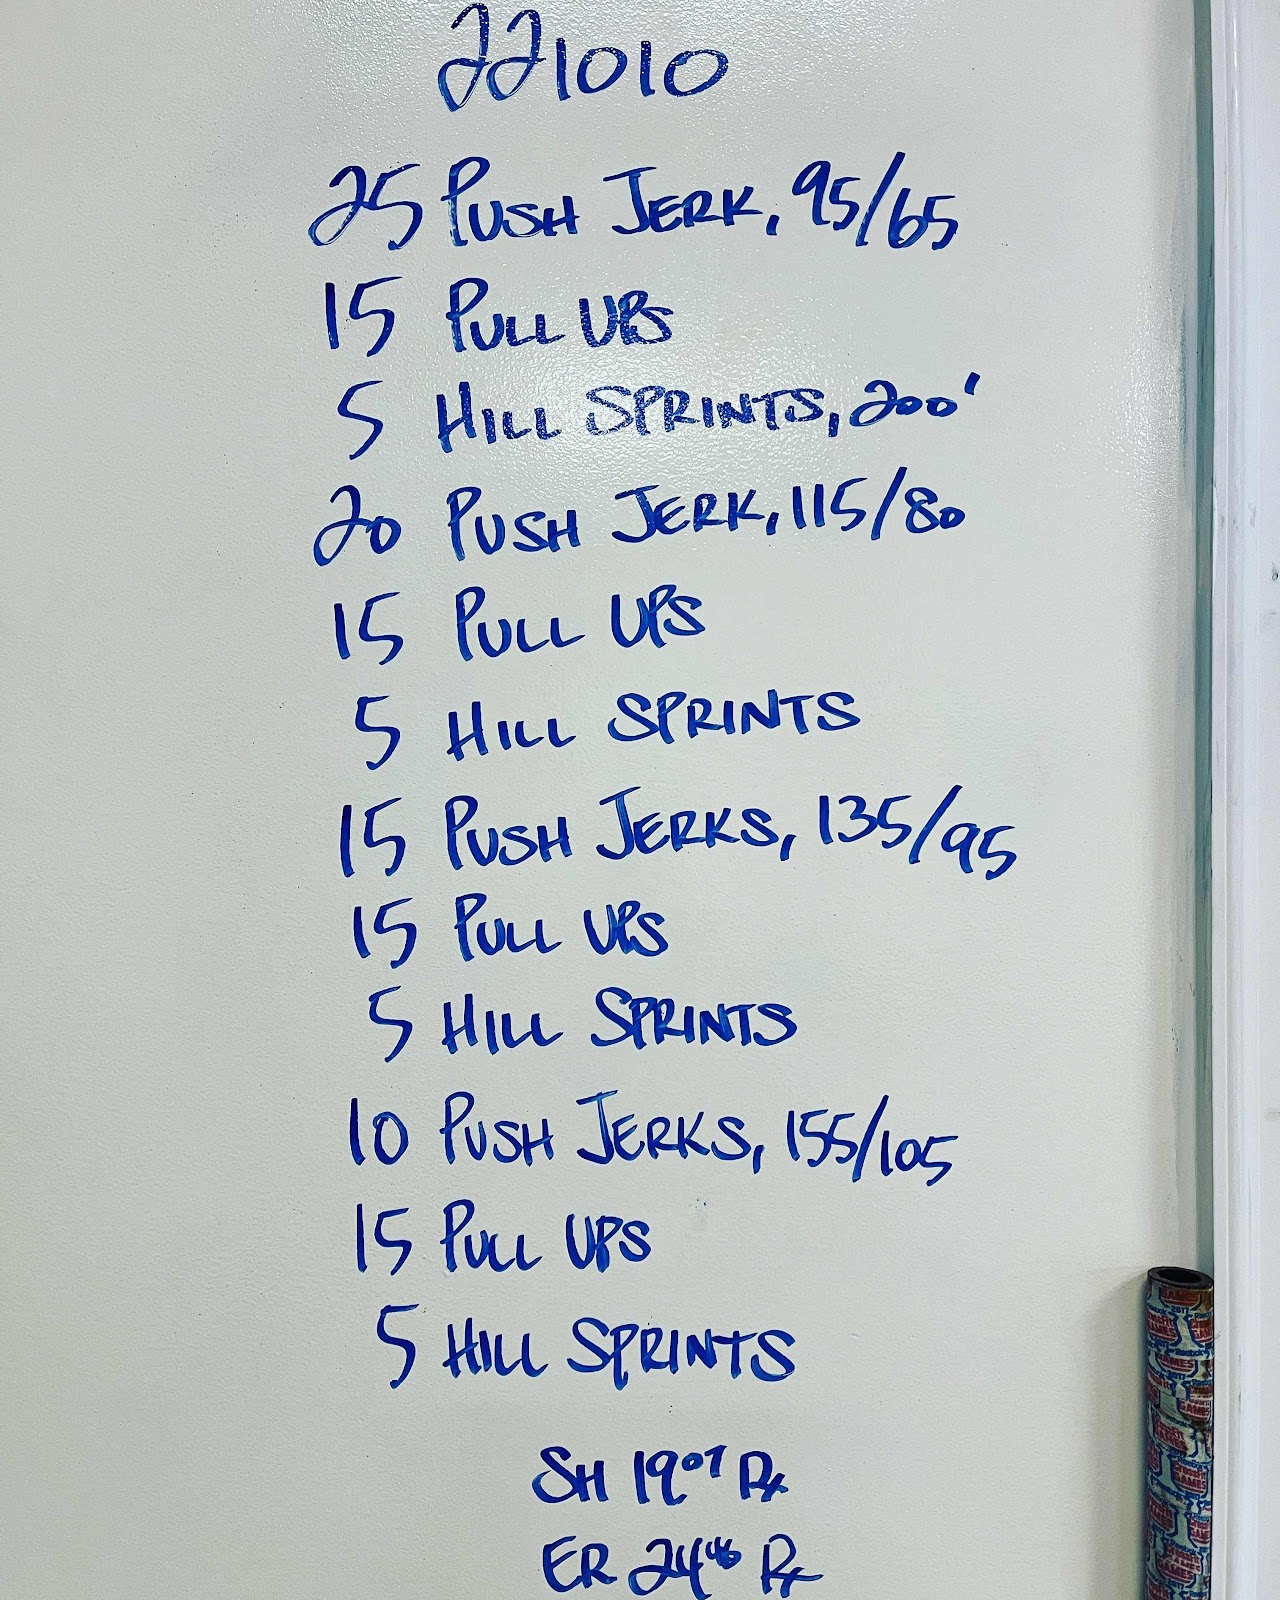 221010
25 PUSH JERK, 95/65
15 PULL UPS
5 HILL SPRINTS, 200'
20 PUSH JERK, 115/80
15 PULL UPS
5 HILL SPRINTS
15 PUSH JERKS, 135/95
15 PULL UPS
5 HILL SPRINTS
10 PUSH JERKS, 155/105
15 PULL UPS
5 HILL SPRINTS
SH 1907 Rx
ER 2446 Rx
GAMES